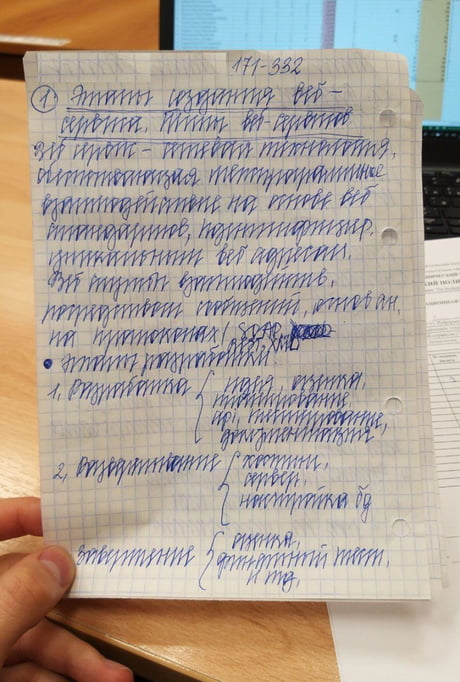 171-332
① Этапы создания веб-
сервиса. Типы веб-сервисов
Веб сервис - сетевая технология,
обеспечивающая межпрограммное
взаимодействие на основе веб
стандартов, идентифицир.
уникальным веб адресам.
Веб службы взаимодейств.
посредством сообщений, основан.
на протоколах / SOAP
REST, XML
• этапы разработки
1. Разработка { идея, оценка,
планирование,
тестирование,
документация,
2. Развертывание { хостинг,
сервер,
настройка бд
Завершение { оценка,
финальный тест,
и тд.